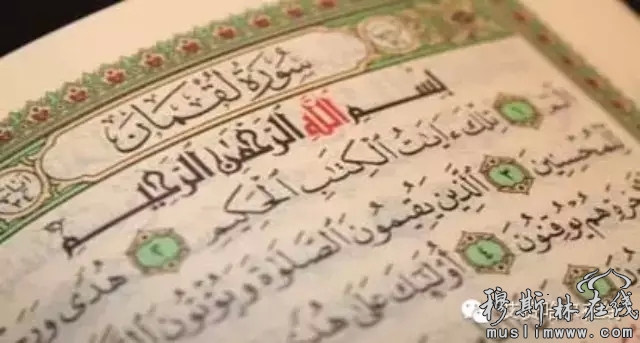 سُورَةُ لُقْمَانَ
بِسْمِ اللَّهِ الرَّحْمَٰنِ الرَّحِيمِ
الٓمٓ ١ تِلْكَ ءَايَٰتُ ٱلْكِتَٰبِ ٱلْحَكِيمِ ٢ هُدًى
لِّلْمُحْسِنِينَ ٣ ٱلَّذِينَ يُقِيمُونَ ٱلصَّلَوٰةَ وَيُؤْتُونَ
هُمْ يُوقِنُونَ ٤ أُو۟لَٰٓئِكَ عَلَىٰ
穆斯林在线
muslimwww.com